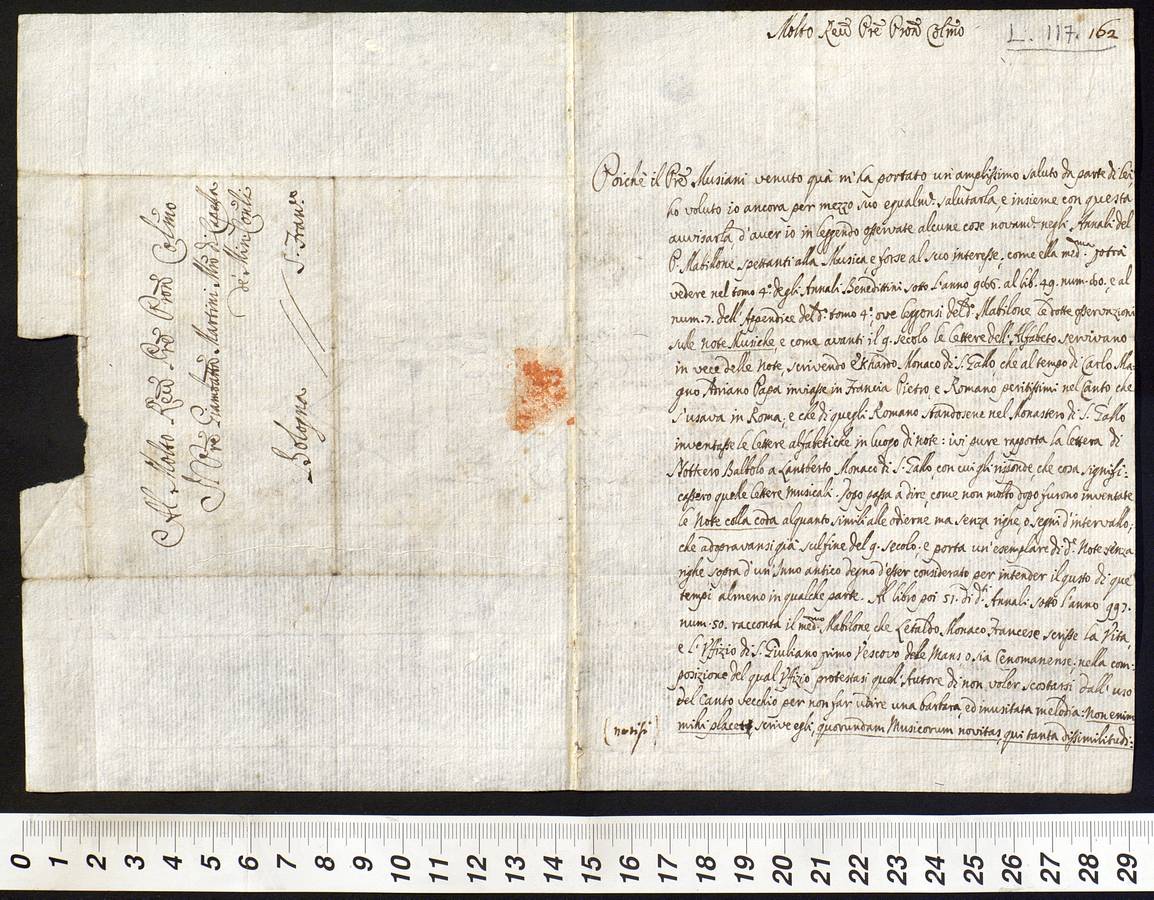 Al Molto Rev̄ Prē Proñ Colmō
Il Prē Giambattā Martini Mrō di Capella
de' Min. Conli
Bologna // S. Fran.co
Molto Rev̄ Prē Proñ Colmō
L. 117. 162
Poichè il Prē Musiani venuto quà m'ha portato un'amplissimo saluto da parte di lei,
ho voluto io ancora per mezzo suo egualm.e salutarla, e insieme con questa
avvisarla d'aver io in leggendo osservate alcune cose novam.e negli Annali del
P. Mabillone spettanti alla Musica, e forse al suo interesse, come ella med.ma potrà
vedere nel tomo 4.o degli Annali Benedittini sotto l'anno 966. al lib. 49. num. 60. e al
num. 7. dell'Appendice del d.o tomo 4.o ove leggonsi del d.o Mabilone le dotte osservazioni
sule note Musiche, e come avanti il 9. secolo le lettere dell'Alfabeto servivano
in vece delle Note, scrivendo Ekkardo Monaco di S. Gallo che al tempo di Carlo Ma:
gno Adriano Papa inviasse in Francia Pietro, e Romano peritissimi nel Canto che
s'usava in Roma, e che di quegli Romano standosene nel Monastero di S. Gallo
inventasse le lettere alfabetiche in luogo di note: ivi pure rapporta la lettera di
Nottkero Balbolo a Lantberto Monaco di S. Gallo, con cui gli risponde, che cosa signifi:
cassero quelle lettere musicali. Dopo passa a dire, come non molto dopo furono inventate
le Note colla coda alquanto simili alle odierne ma senza righe, o segni d'intervallo;
che adopravansi già sul fine del 9. secolo: e porta un'esemplare di d.e Note senza
righe sopra d'un'Inno antico degno d'esser considerato per intender il gusto di que'
tempi almeno in qualche parte. Al libro poi 51. di d.i Annali sotto l'anno 997.
num. 50. racconta il med.mo Mabilone che Letaldo Monaco Francese scrisse la Vita,
e l'Uffizio di S. Giuliano primo Vescovo dele Mans, o sia Cenomanense; nella com:
posizione del qual Uffizio protestasi quel'Autore di non voler scostarsi dall'uso
del Canto vecchio per non far udire una barbara, ed inusitata melodia: Non enim
mihi placet, scrive egli, quorundam Musicorum novitas, qui tanta dissimilitudi: